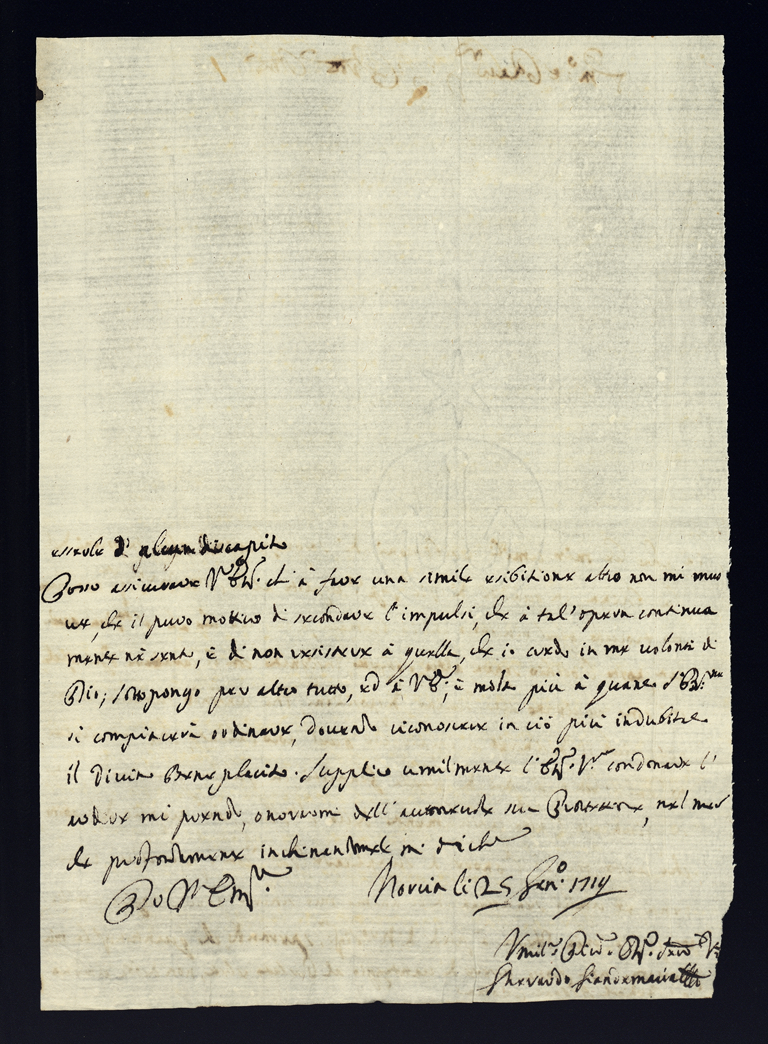 esserle d'alcun discapito
Posso assicurare V. Em. che à fare una simile esibitione altro non mi muo
ve, che il puro motivo di secondare l'impulsi, che à tal'opera continua
mente ne sento, è di non resistere à quella, che io credo in me volontà di
Dio; sottopongo per altro tutto, ed à V. E.; è molto più à quanto
si compiacerà ordinare, dovendo riconoscere in ciò più indubitate
il Divin Beneplacito. Supplico umilmente l' Em. V. condonare l'
ardire mi prendo, onorarmi dell' autorevole sua Protezione, nel men
che profondamente inchinandomele mi dico
Di V. Em.
Norcia li 25 Gen.o 1719
Umil. Div. Obb.
Giandemaria